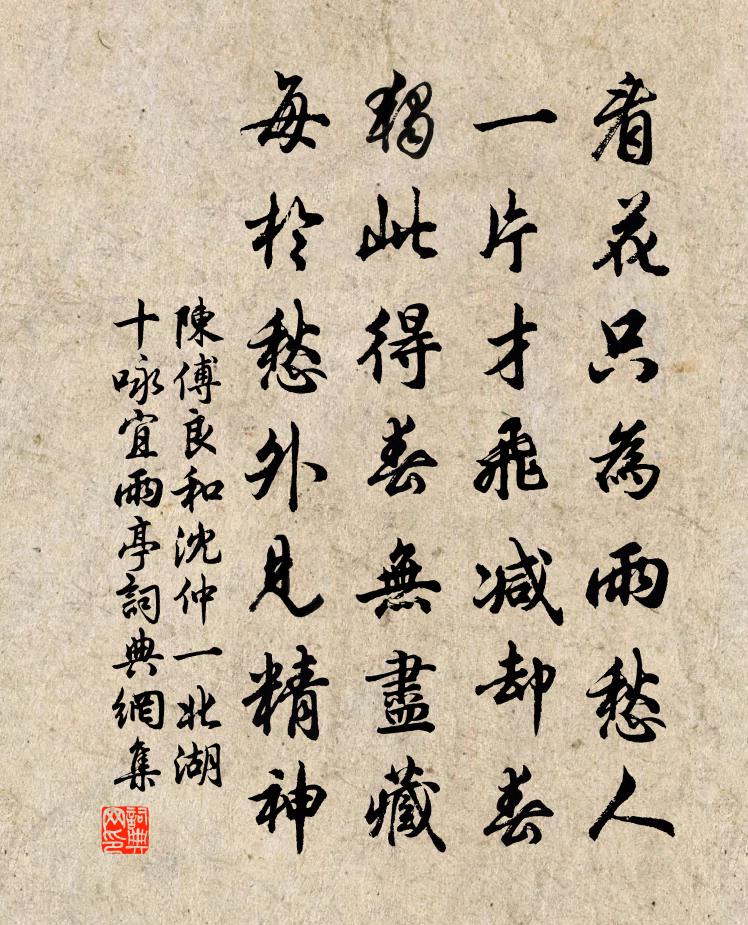 看花只為雨愁人
一片才飛減却春
獨此得春無盡藏
每於愁外見精神
陳傅良和沈仲一北湖
十咏宜雨亭詞典網集
詞典网印